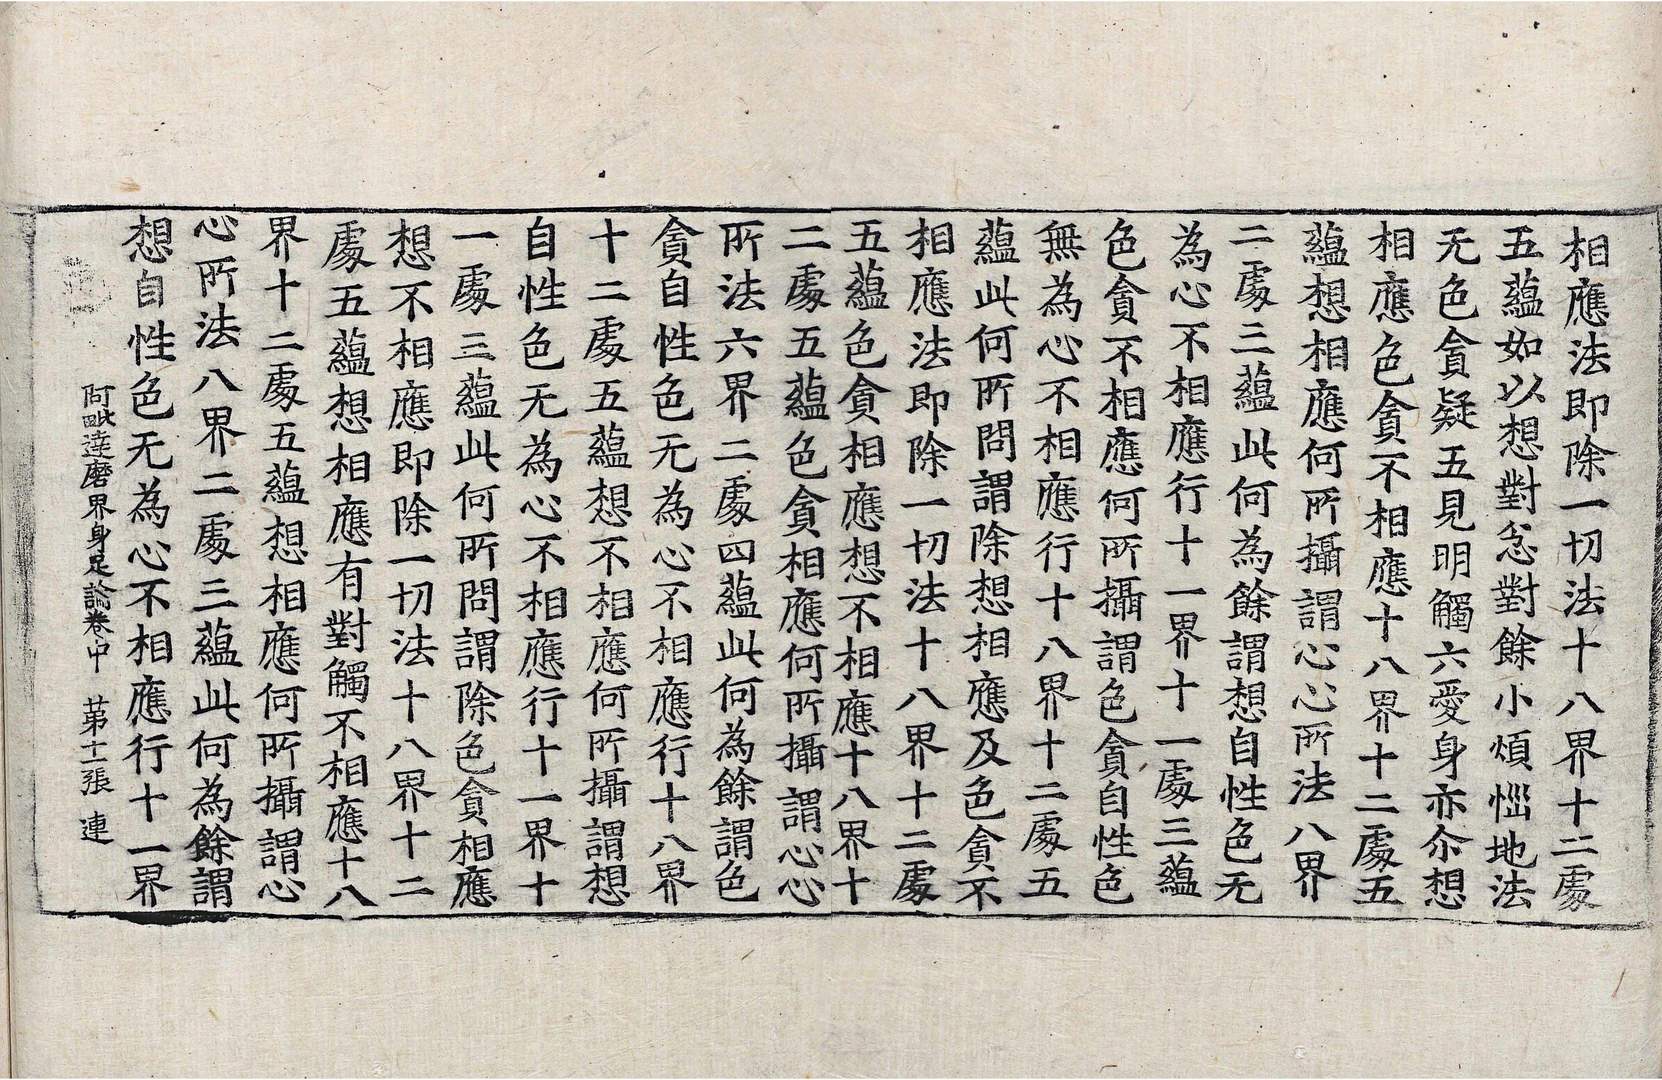 相應法即除一切法十八界十二處
五蘊如以想對忿對餘小煩惱地法
无色貪疑五見明觸六愛身亦尒想
相應色貪不相應十八界十二處五
蘊想相應何所攝謂心心所法八界
二處三蘊此何為餘謂想自性色无
為心不相應行十一界十一處三蘊
色貪不相應何所攝謂色貪自性色
無為心不相應行十八界十二處五
蘊此何所問謂除想相應及色貪不
相應法即除一切法十八界十二處
五蘊色貪相應想不相應十八界十
二處五蘊色貪相應何所攝謂心心
所法六界二處四蘊此何為餘謂色
貪自性色无為心不相應行十八界
十二處五蘊想不相應何所攝謂想
自性色无為心不相應行十一界十
一處三蘊此何所問謂除色貪相應
想不相應即除一切法十八界十二
處五蘊想相應有對觸不相應十八
界十二處五蘊想相應何所攝謂心
心所法八界二處三蘊此何為餘謂
想自性色无為心不相應行十一界
阿毗達磨界身足論卷中 苐十二張 連